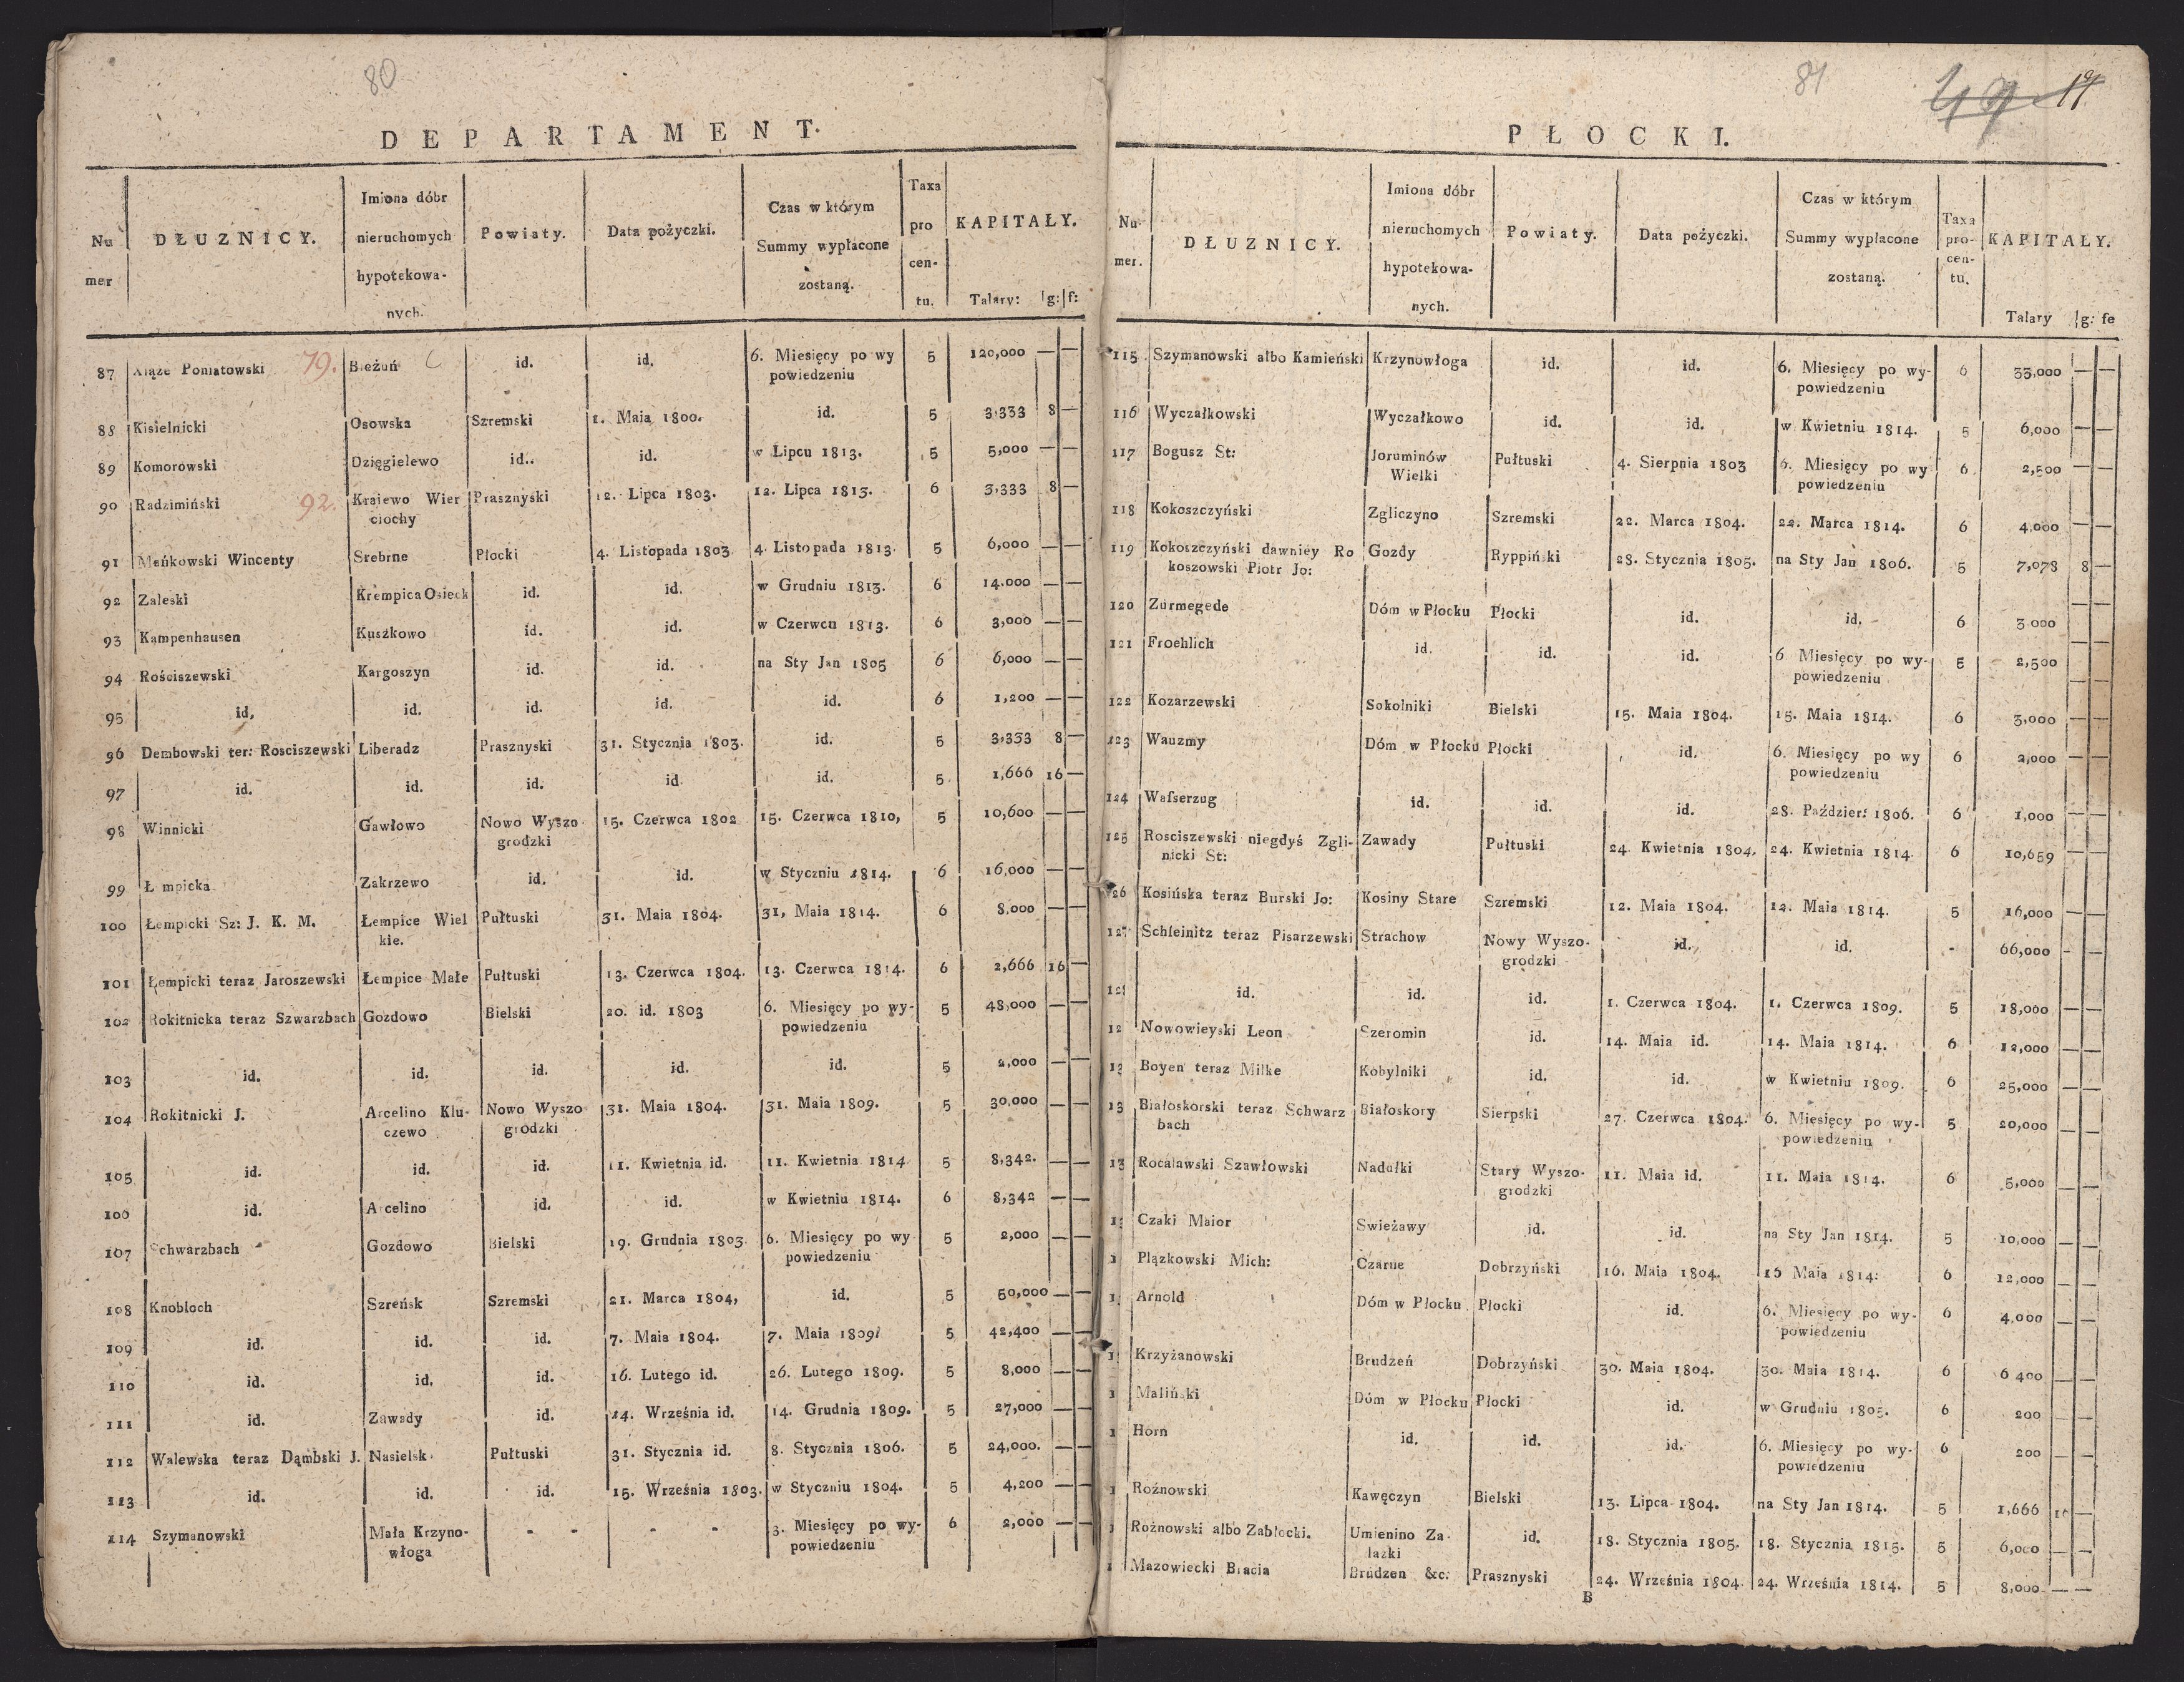 80
DEPARTAMENT.
Numer | DŁUZNICY. | Imiona dóbr nieruchomych hypotekowanych. | Powiaty. | Data pożyczki. | Czas w którym Summy wypłacone zostaną. | Taxa pro centu. | KAPITAŁY. Talary: g: f:
87 Xiąże Poniatowski 79. | Bieżuń | id. | id. | 6. Miesięcy po wy powiedzeniu | 5 | 120,000 — —
88 Kisielnicki | Osowska | Szremski | 1. Maia 1800. | id. | 5 | 3,333 8 —
89 Komorowski | Dzięgielewo | id.. | id. | w Lipcu 1813. | 5 | 5,000 — —
90 Radzimiński 92. | Kraiewo Wier ciochy | Prasznyski | 12. Lipca 1803. | 12. Lipca 1813. | 6 | 3,333 8 —
91 Mańkowski Wincenty | Srebrne | Płocki | 4. Listopada 1803. | 4. Listopada 1813. | 5 | 6,000 — —
92 Zaleski | Krempica Osieck | id. | id. | w Grudniu 1813. | 6 | 14.000 — —
93 Kampenhausen | Kuszkowo | id. | id. | w Czerwcu 1813. | 6 | 3,000 — —
94 Rościszewski | Kargoszyn | id. | id. | na Sty Jan 1805 | 6 | 6,000 — —
95 id. | id. | id. | id. | id. | 6 | 1,200 — —
96 Dembowski ter: Rosciszewski | Liberadz | Prasznyski | 31. Stycznia 1803. | id. | 5 | 3,333 8 —
97 id. | id. | id. | id. | id. | 5 | 1,666 16 —
98 Winnicki | Gawłowo | Nowo Wyszo grodzki | 15. Czerwca 1802 | 15. Czerwca 1810, | 5 | 10,600 — —
99 Ł mpicka | Zakrzewo | id. | id. | w Styczniu 1814. | 6 | 16,000 — —
100 Łempicki Sz: J. K. M. | Łempice Wiel kie. | Pułtuski | 31. Maia 1804. | 31, Maia 1814. | 6 | 8,000 — —
101 Łempicki teraz Jaroszewski | Łempice Małe | Pułtuski | 13. Czerwca 1804. | 13. Czerwca 1814. | 6 | 2,666 16 —
102 Rokitnicka teraz Szwarzbach | Gozdowo | Bielski | 20. id. 1803 | 6. Miesięcy po wy- powiedzeniu | 5 | 48,000 — —
103 id. | id. | id. | id. | id. | 5 | 2,000 — —
104 Rokitnicki J. | Arcelino Klu- czewo | Nowo Wyszo grodzki | 31. Maia 1804. | 31. Maia 1809. | 5 | 30,000 — —
105 id. | id. | id. | 11. Kwietnia id. | 11. Kwietnia 1814 | 5 | 8,342. — —
106 id. | Arcelino | id. | id. | w Kwietniu 1814. | 6 | 8,342 — —
107 Schwarzbach | Gozdowo | Bielski | 19. Grudnia 1803. | 6. Miesięcy po wy powiedzeniu | 5 | 2,000 — —
108 Knobloch | Szreńsk | Szremski | 21. Marca 1804, | id. | 5 | 50,000 — —
109 id. | id. | id. | 7. Maia 1804. | 7. Maia 1809. | 5 | 42,400 — —
110 id. | id. | id. | 16. Lutego id. | 26. Lutego 1809. | 5 | 8,000 — —
111 id. | Zawady | id. | 14. Września id. | 14. Grudnia 1809. | 5 | 27,000 — —
112 Walewska teraz Dąmbski J. | Nasielsk | Pułtuski | 31. Stycznia id. | 8. Stycznia 1806. | 5 | 24,000. — —
113 id. | id. | id. | 15. Września 1803. | w Styczniu 1804. | 5 | 4,200 — —
114 Szymanowski | Mała Krzyno- włoga | - - | - - | 3. Miesięcy po wy- powiedzeniu | 6 | 2,000 — —
81
PŁOCKI.
Numer. | DŁUZNICY. | Imiona dóbr nieruchomych hypotekowanych. | Powiaty. | Data pożyczki. | Czas w którym Summy wypłacone zostaną. | Taxa pro- cen- tu. | KAPITAŁY. Talary g: fe
115 Szymanowski albo Kamieński | Krzynowłoga | id. | id. | 6. Miesięcy po wy- powiedzeniu | 6 | 33,000 — —
116 Wyczałkowski | Wyczałkowo | id. | id. | w Kwietniu 1814. | 5 | 6,000 — —
117 Bogusz St: | Joruminów Wielki | Pułtuski | 4. Sierpnia 1803 | 6. Miesięcy po wy powiedzeniu | 6 | 2,500 — —
118 Kokoszczyński | Zgliczyno | Szremski | 22. Marca 1804. | 22. Marca 1814. | 6 | 4,000 — —
119 Kokoszczyński dawniey Ro koszowski Piotr Jo: | Gozdy | Ryppiński | 28. Stycznia 1805. | na Sty Jan 1806. | 5 | 7,078 8 —
120 Zurmegede | Dóm w Płocku | Płocki | id. | id. | 6 | 3 000 — —
121 Froehlich | id. | id. | id. | 6 Miesięcy po wy- powiedzeniu | 5 | 2,500 — —
122 Kozarzewski | Sokolniki | Bielski | 15. Maia 1804. | 15. Maia 1814. | 6 | 3,000 — —
123 Wauzmy | Dóm w Płocku | Płocki | id. | 6. Miesięcy po wy powiedzeniu | 6 | 2,000 — —
124 Waſserzug | id. | id. | id. | 28. Paździer: 1806. | 6 | 1,000 — —
125 Rosciszewski niegdyś Zgli- nicki St: | Zawady | Pułtuski | 24. Kwietnia 1804. | 24. Kwietnia 1814. | 6 | 10,659 — —
126 Kosińska teraz Burski Jo: | Kosiny Stare | Szremski | 12. Maia 1804. | 12. Maia 1814. | 5 | 16,000 — —
127 Schleinitz teraz Pisarzewski | Strachow | Nowy Wyszo- grodzki | id. | id. | - | 66,000 — —
128 id. | id. | id. | 1. Czerwca 1804. | 1. Czerwca 1809. | 5 | 18,000 — —
12 Nowowieyski Leon | Szeromin | id. | 14. Maia id. | 14. Maia 1814. | 6 | 12,000 — —
13 Boyen teraz Milke | Kobylniki | id. | id. | w Kwietniu 1809. | 6 | 25,000 — —
13 Białoskorski teraz Schwarz bach | Białoskory | Sierpski | 27. Czerwca 1804. | 6. Miesięcy po wy- powiedzeniu | 5 | 20,000 — —
13 Rocalawski Szawłowski | Nadułki | Stary Wyszo- grodzki | 11. Maia id. | 11. Maia 1814. | 6 | 5,000 — —
13 Czaki Maior | Swieżawy | id. | id. | na Sty Jan 1814. | 5 | 10,000 — —
1 Plązkowski Mich: | Czarne | Dobrzyński | 16. Maia 1804. | 16 Maia 1814: | 6 | 12,000 — —
1 Arnold | Dóm w Płocku | Płocki | id. | 6. Miesięcy po wy- powiedzeniu | 6 | 4,000 — —
1 Krzyżanowski | Brudzeń | Dobrzyński | 30. Maia 1804. | 30. Maia 1814. | 6 | 6 400 — —
1 Maliński | Dóm w Płocku | Płocki | id. | w Grudniu 1805. | 6 | 200 — —
1 Horn | id. | id. | id. | 6. Miesięcy po wy- powiedzeniu | 6 | 200 — —
1 Rożnowski | Kawęczyn | Bielski | 13. Lipca 1804. | na Sty Jan 1814. | 5 | 1,666 —
1 Rożnowski albo Zabłocki. | Umienino Za- lazki | id. | 18. Stycznia 1805. | 18. Stycznia 1815. | 5 | 6,000 — —
1 Mazowiecki Bracia | Brudzen &c. | Prasznyski | 24. Września 1804. | 24. Września 1814. | 5 | 8,000 — —
B